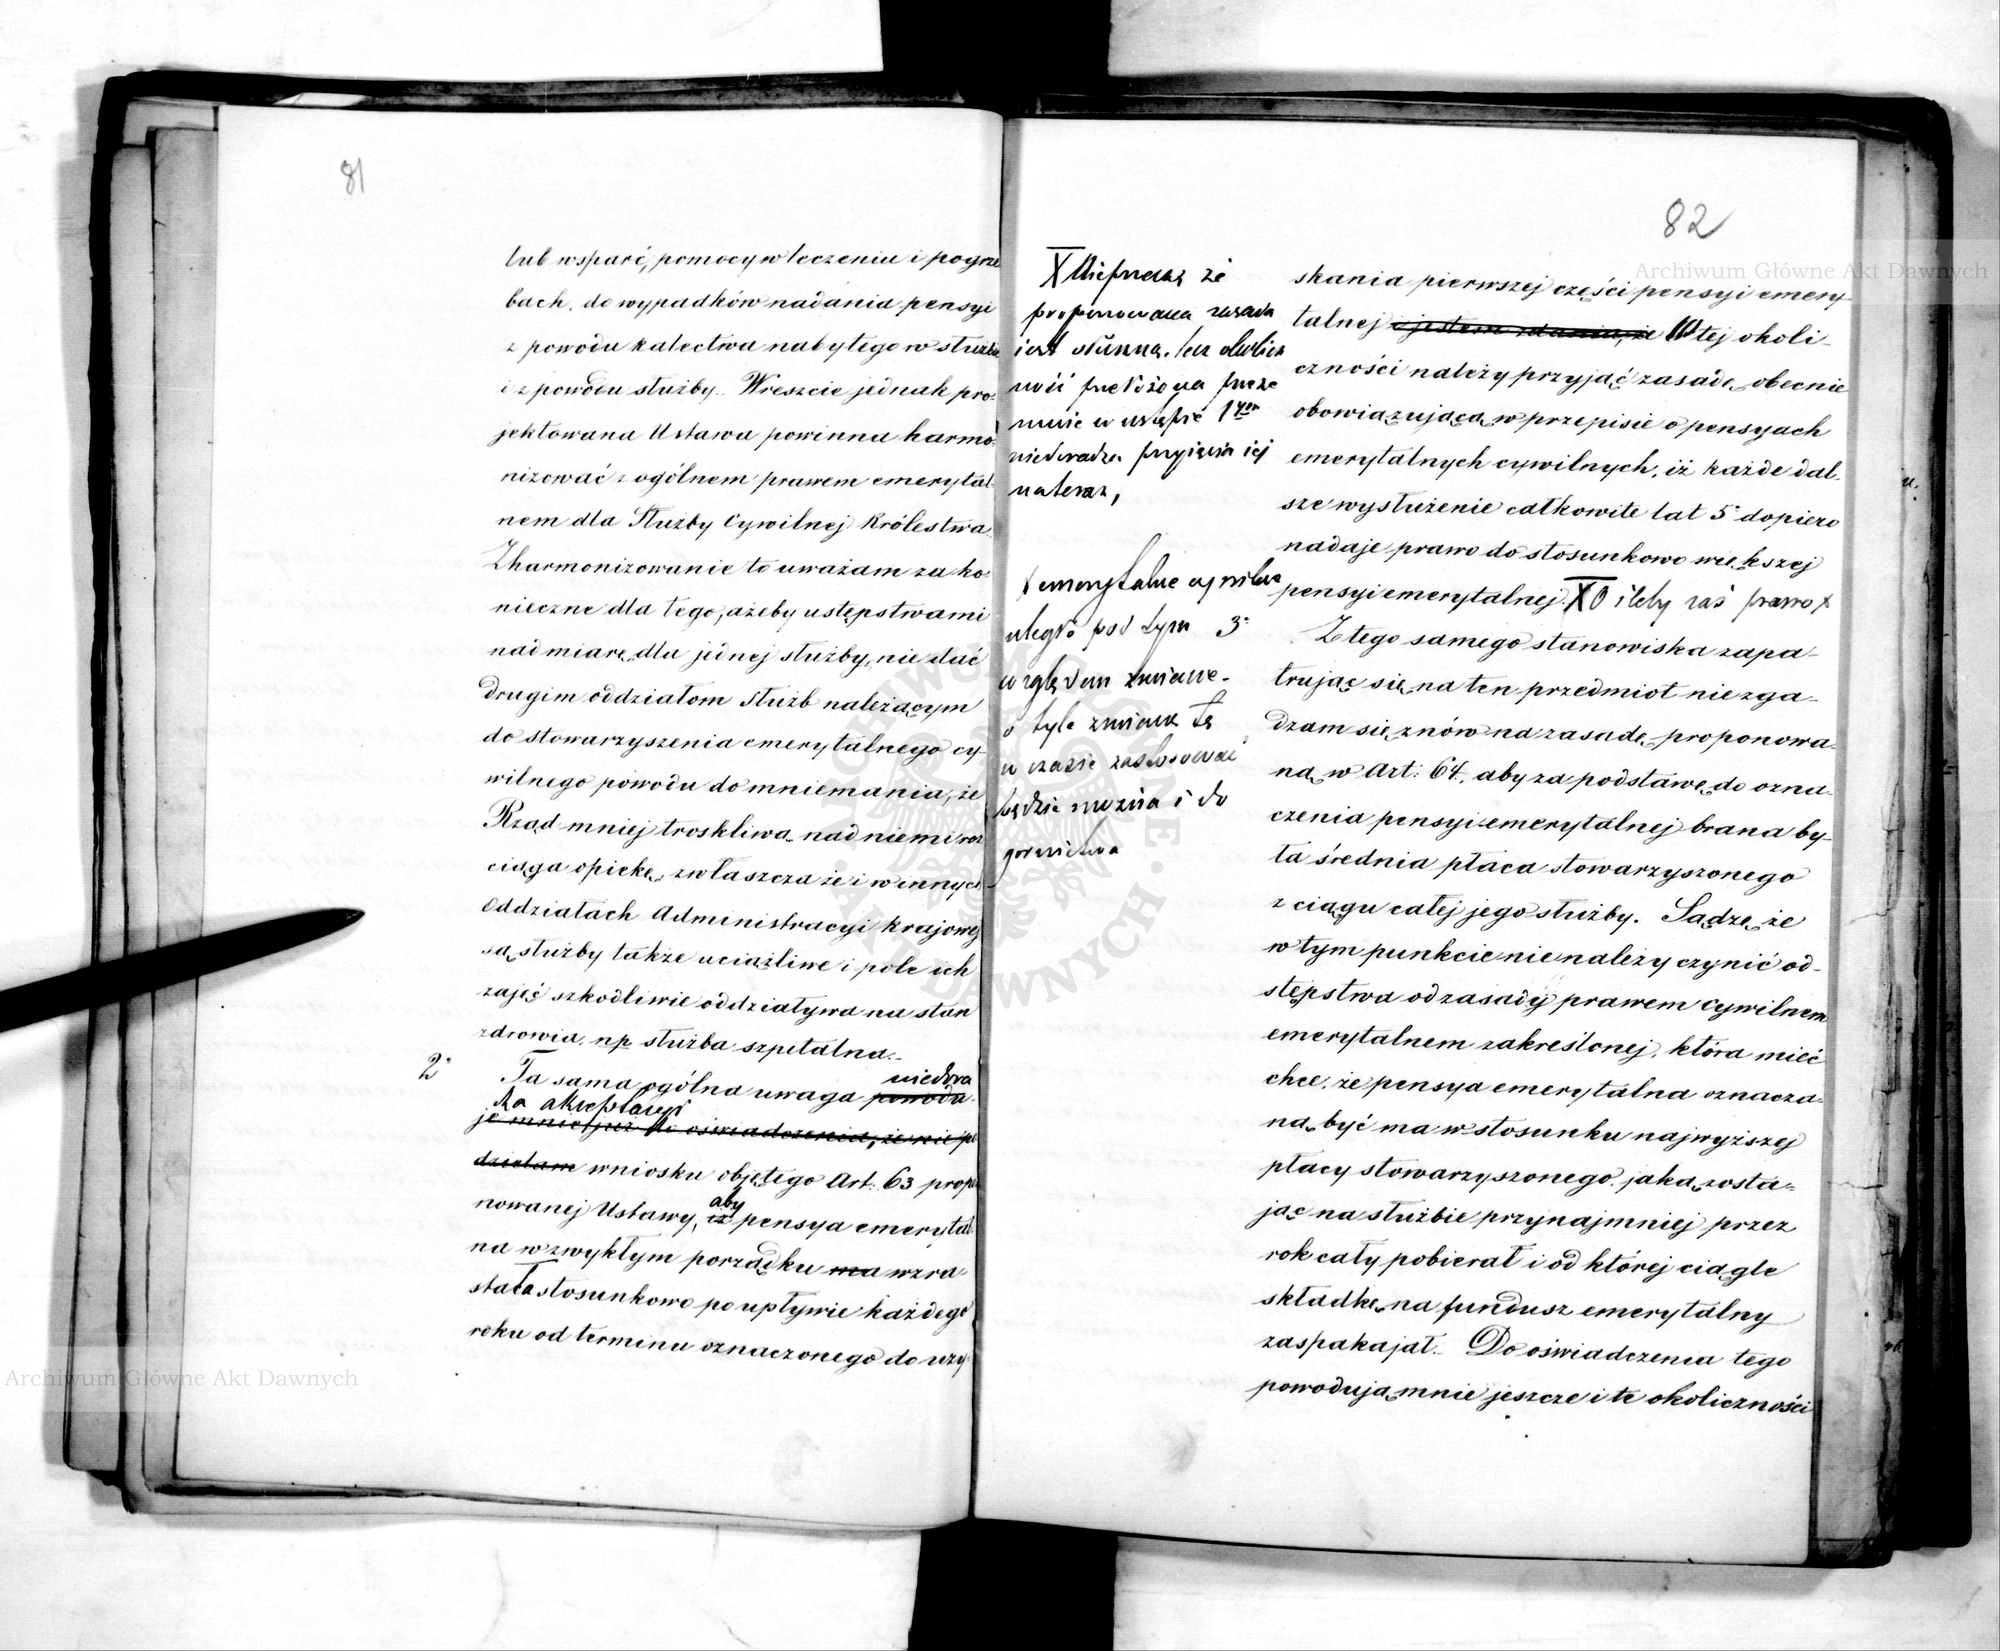 81
lub wsparć, pomocy w leczeniu i pogrze
bach, do wypadków nadania pensyi
z powodu kalectwa nabytego w służbie
i z powodu służby. Wreszcie jednak pro-
jektowana Ustawa powinna harmo-
nizować z ogólnem prawem emerytal-
nem dla Służby Cywilnej Królestwa.
Zharmonizowanie to uważam za ko-
nieczne dla tego, ażeby ustępstwami
nad miarę dla jednej służby, nie dać
drugim oddziałom służb należącym
do stowarzyszenia emerytalnego cy-
wilnego powodu do mniemania, że
Rząd mniej troskliwą nad niemi roz
ciąga opiekę, zwłaszcza że i w innych
Oddziałach Administracyi Krajowej
są służby także uciążliwe i pole ich
zajęć szkodliwie oddziaływa na stan
zdrowia, np. służba szpitalna.
niedora
2° Ta sama ogólna uwaga powodu-
dza akceptacyi
je mnie już do oświadczenia, że nie po
dzielam wniosku objętego Art. 63 propo
aby
nowanej Ustawy, iż pensya emerytal
na w zwykłym porządku ma wzra-
stała stosunkowo po upływie każdego
roku od terminu oznaczonego do uzy-
82
X Nieprzeczę że
proponowana zasada
jest słuszna, lecz okolicz
ność przełożona przeze
mnie w ustępie 1ym
niedoradza przyjęcia jej
nateraz,
X emerytalne cywilne
uległo pod tym 3°
względem zmianie.
o tyle zmianę tę
w czasie zastosować
będzie można i do
górnictwa
skania pierwszej części pensyi emery-
talnej i jestem zdania, że W tej okoli-
czności należy przyjąć zasadę obecnie
obowiązującą w przepisie o pensyach
emerytalnych cywilnych, iż każde dal-
sze wysłużenie całkowite lat 5° dopiero
nadaje prawo do stosunkowo większej
pensyi emerytalnej. X O ileby zaś prawo X
Z tego samego stanowiska zapa-
trując się na ten przedmiot nie zga-
dzam się znów na zasadę proponowa-
ną w Art: 64, aby za podstawę do ozna-
czenia pensyi emerytalnej brana by-
ła średnia płaca stowarzyszonego
z ciągu całej jego służby. Sądzę, że
w tym punkcie nie należy czynić od-
stępstwa od zasady prawem cywilnem
emerytalnem zakreślonej, która mieć
chce, że pensya emerytalna oznacza-
ną być ma w stosunku najwyższej
płacy stowarzyszonego, jaką zosta-
jąc na służbie przynajmniej przez
rok cały pobierał i od której ciągle
składkę na fundusz emerytalny
zaspakajał. Do oświadczenia tego
powodują mnie jeszcze i te okoliczności
Archiwum Główne Akt Dawnych
Archiwum Główne Akt Dawnych